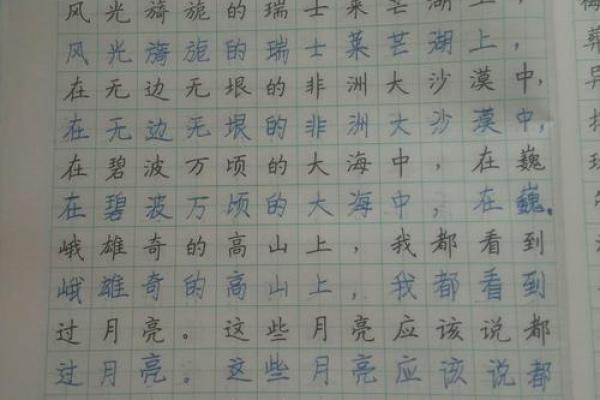 风光旖旎的瑞士莱芒湖上，
风光旖旎的瑞士莱芒湖上，
在无边无垠的非洲大沙漠中，
在无边无垠的非洲大沙漠中，
在碧波万顷的大海中，在巍
在碧波万顷的大海中，在巍
峨雄奇的高山上，我都看到
峨雄奇的高山上，我都看到
过月亮。这些月亮应该说都
过月亮。这些月亮应该说都